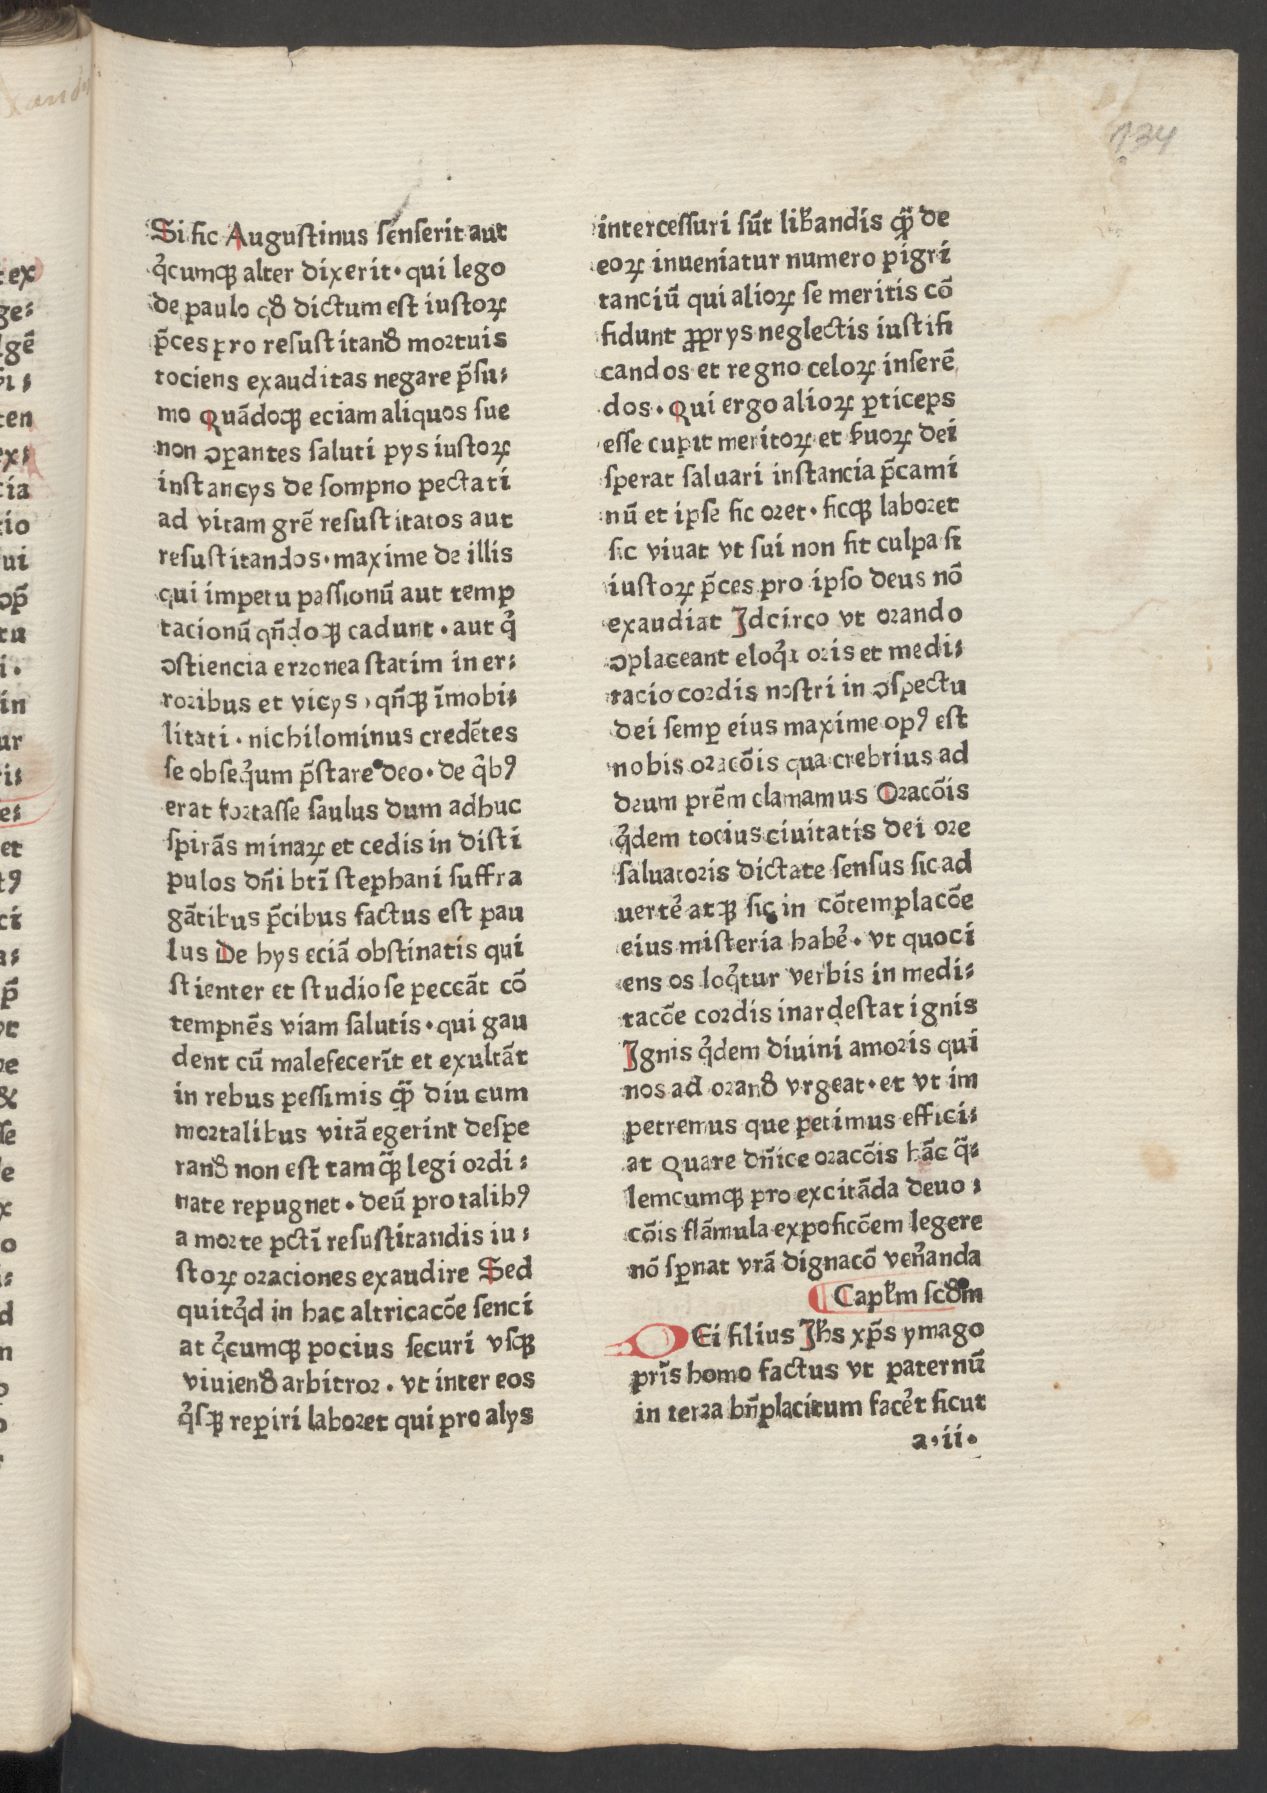 134
Si sic Augustinus senserit aut
q̇cumqꝫ alter dixerit · qui lego
de paulo qð dictum est iustoꝝ
p̄ces pro resustitanð mortuis
tociens exauditas negare p̄su⸗
mo Quādoqꝫ eciam aliquos sue
non ꝯꝑantes saluti pys iustoꝝ
instancys de sompno pectati
ad vitam grē resustitatos aut
resustitandos · maxime de illis
qui impetu passionū aut temp
tacionū qn̄doqꝫ cadunt · aut q̇
ꝯstiencia erronea statim in er⸗
roribus et vicys, qn̄qꝫ īmobi⸗
litati · nichilominus credētes
se obseq̇um p̄stare deo · de q̇bꝰ
erat fortasse saulus dum adhuc
spirās minaꝝ et cedis in disti
pulos dn̄i btī stephani suffra
gātibus p̄cibus factus est pau
lus De hys eciā obstinatis qui
stienter et studiose peccāt cō
tempnēs viam salutis · qui gau
dent cū malefecerīt et exultāt
in rebus pessimis qꝫ̄ diu cum
mortalibus vitā egerint despe
ranð non est tamqꝫ̄ legi ordi⸗
nate repugnet · deū pro talibꝰ
a morte pctī resustitandis iu⸗
stoꝝ oraciones exaudire Sed
quitq̇d in hac altricacōe senci
at q̇cumqꝫ pocius securi vsqꝫ
viuienð arbitror · vt inter eos
q̇sqꝫ reꝑiri laboret qui pro alys
intercessuri sūt lib̄andis qꝫ̄ de
eoꝝ inueniatur numero pigri
tanciū qui alioꝝ se meritis cō
fidunt ꝓprys neglectis iustifi
candos et regno celoꝝ inserē
dos · Qui ergo alioꝝ ꝑticeps
esse cupit meritoꝝ et ẜuoꝝ dei
sperat saluari instancia p̄cami
nū et ipse sic oret · sicqꝫ laboret
sic viuat vt sui non sit culpa si
iustoꝝ p̄ces pro ipso deus nō
exaudiat Idcirco vt orando
ꝯplaceant eloq̇a oris et medi⸗
tacio cordis nostri in ꝯspectu
dei semꝑ eius maxime opꝰ est
nobis oracōis qua crebrius ad
deum prēm clamamus Oracōis
q̇dem tocius ciuitatis dei ore
saluatoris dictate sensus sic ad
uertē atqꝫ sic in cōtemplacōe
eius misteria habē · vt quoci
ens os loq̇tur verbis in medi⸗
tacōe cordis inardestat ignis
Ignis q̇dem diuini amoris qui
nos ad oranð vrgeat · et vt im
petremus que petimus effici⸗
at Quare dn̄ice oracōis hāc q̄⸗
lemcumqꝫ pro excitāda deuo⸗
cōis flāmula exposicōem legere
nō sꝑnat vrā dignacō ven̄anda
Capl̄m scðm
DEi filius Jhs xp̄s ymago
prīs homo factus vt paternū
in terra bn̄placitum facēt sicut
a·ii·